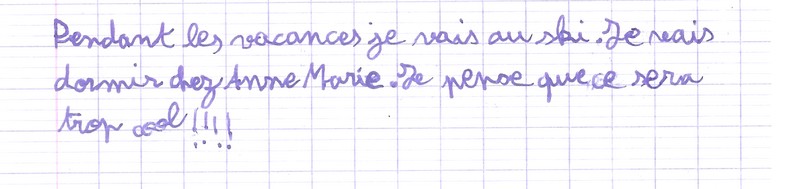 Pendant les vacances je vais au ski. Je vais
dormir chez Anne Marie. Je pense que ce sera
trop cool !!!!